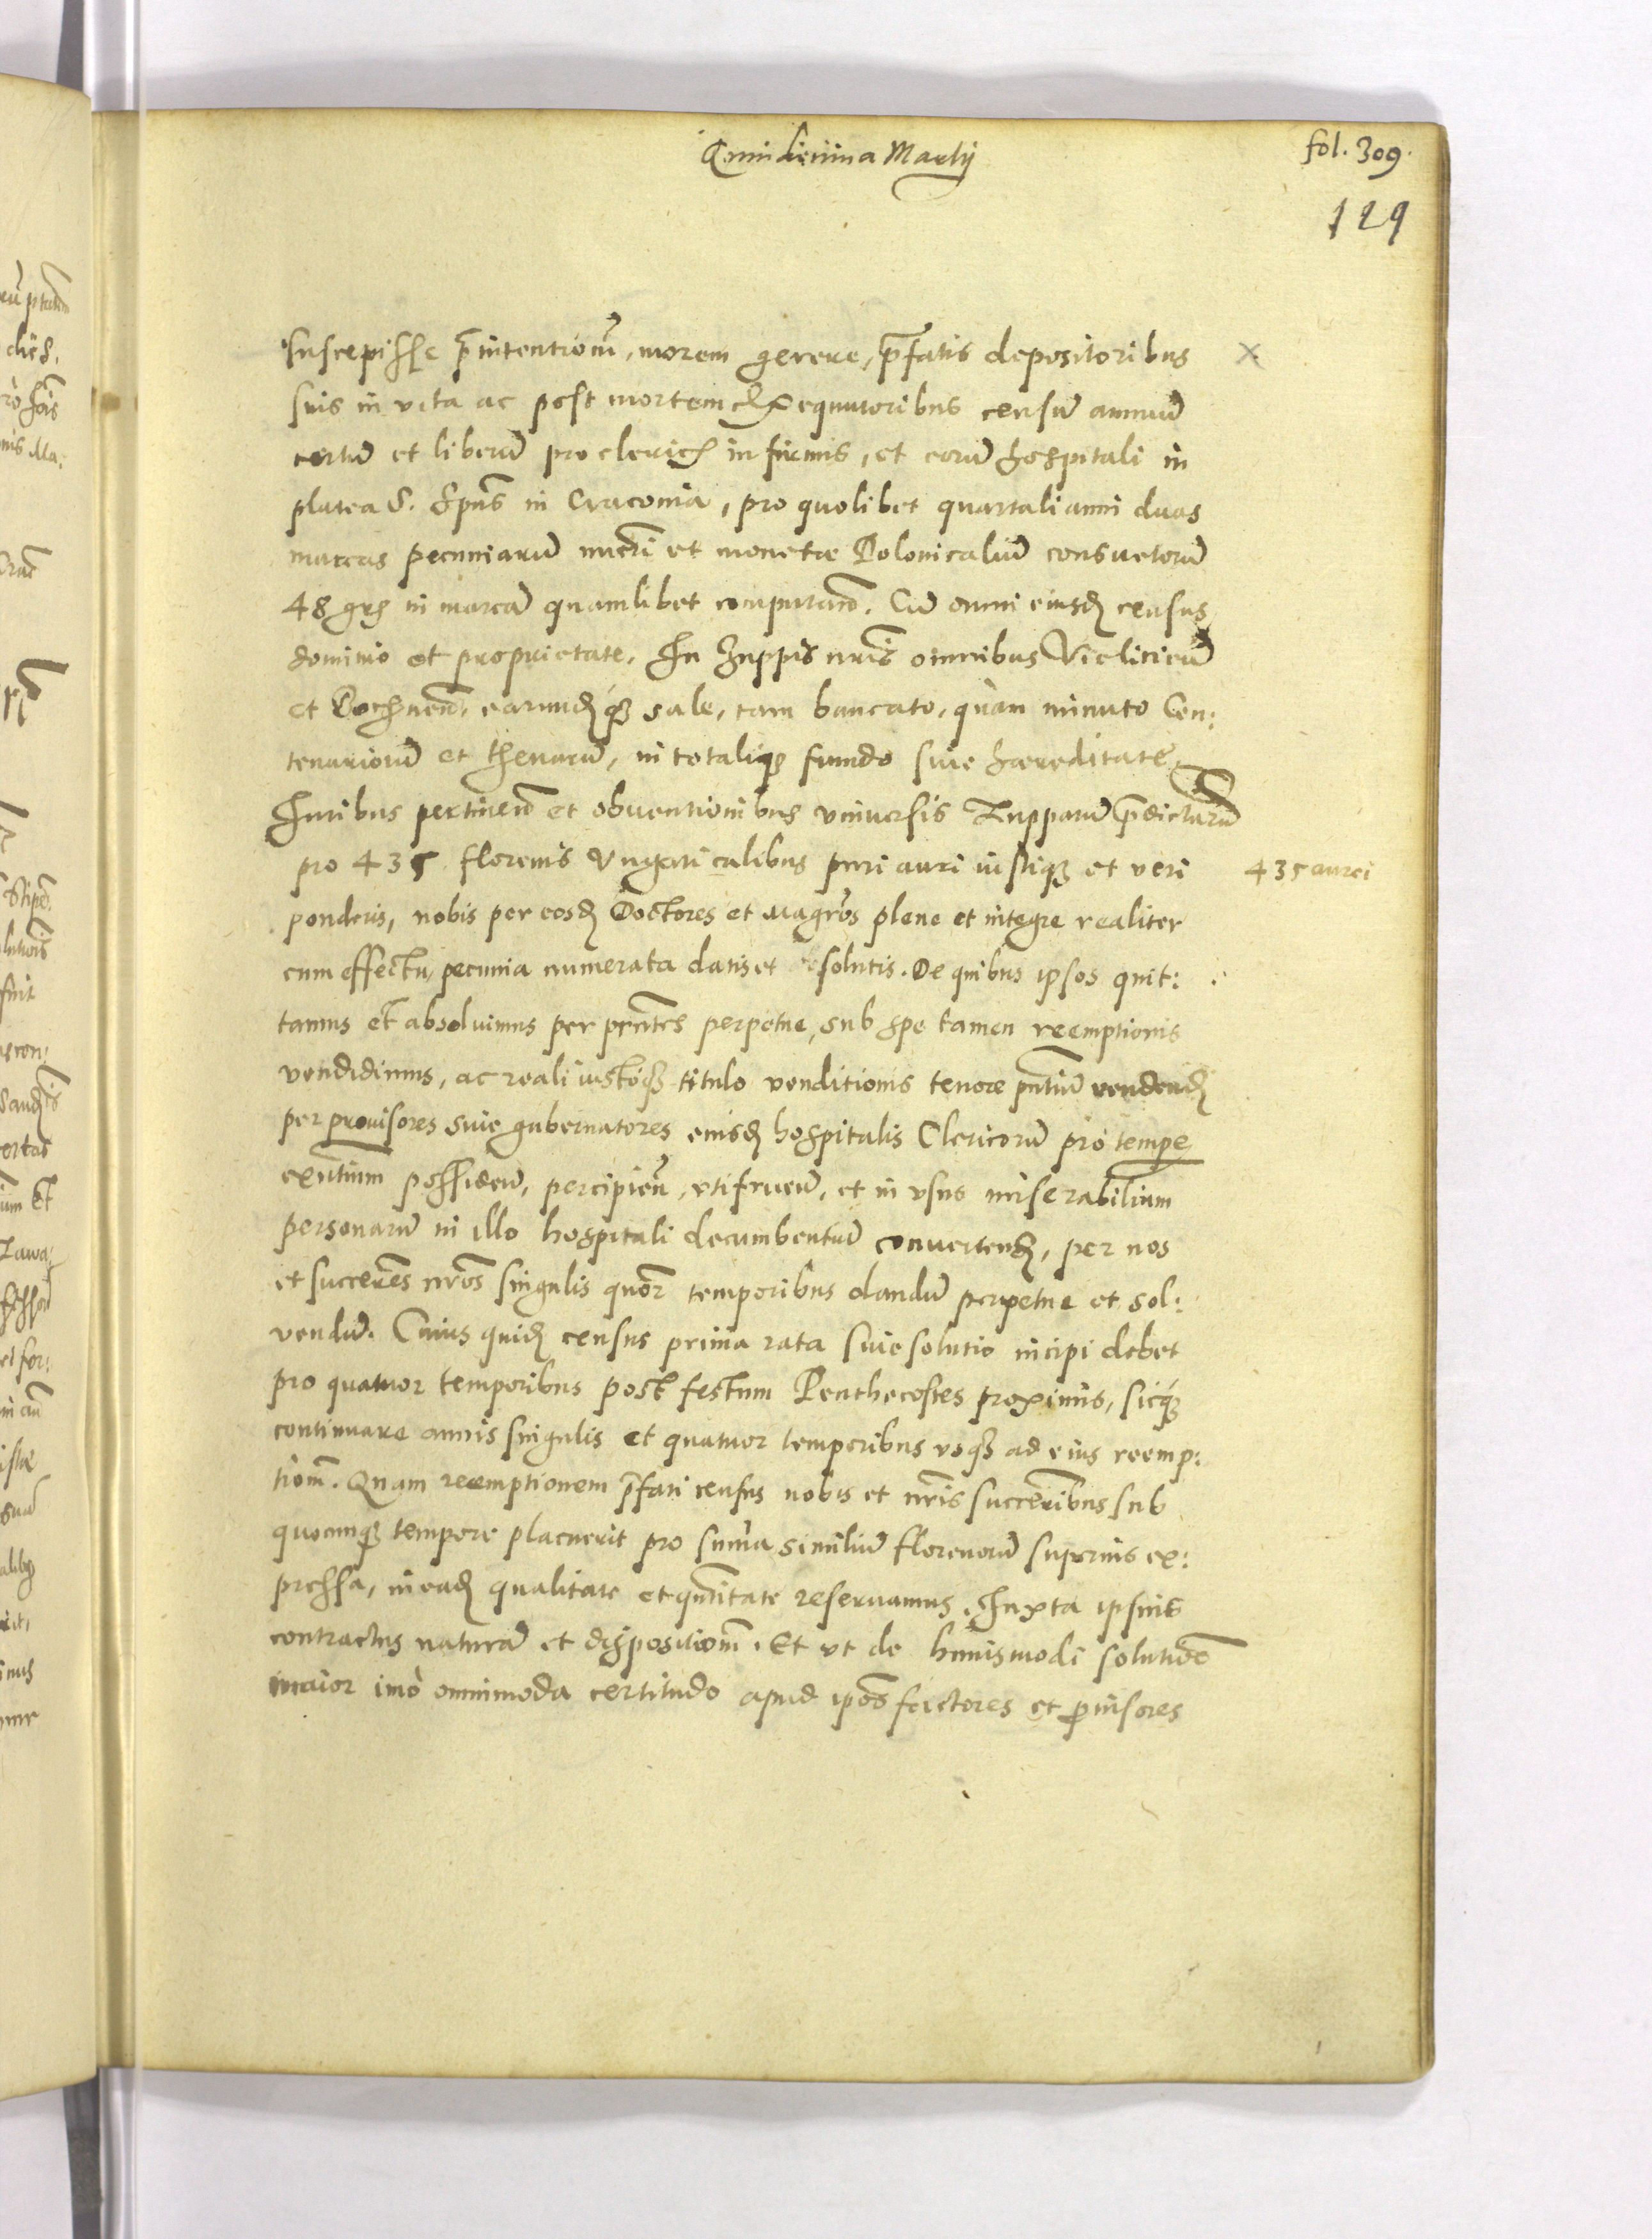 Quindecima Martij
fol. 309.
129
suscepisse p̄ intentionū, morem gerere, p̄fatis depositoribus
suis in vita ac post mortem exequutoribus censū annuū
certū et liberū pro clericis infirmis, et eorū hospitali in
platea S. Spūs in Cracovia, pro quolibet quartali anni duas
marcas pecuniarū nūcri et monetæ Polonicaliū consuetorū
48 grs in marcā quamlibet computan̄. Cū omni eiusd census
dominio et proprietate. In Zuppis nrīs omnibus Vieliciēn̄
et Bochnen̄. earundq₃ sale, tam bancato, quàm minuto Cen:
tenariorū et thenarū, in totaliq₃ fundo sive hæreditate,
Iuribus pertinen̄ et obventionibus universis Zupparū p̄dictarū
pro 435 florenis Ungaricalibus puri auri iustiq₃ et veri
435 aurei
ponderis, nobis per eosd Doctores et Magrōs plene et integre realiter
cum effectu, pecunia numerata datis et solutis. De quibus ipsos quit:
tamus et absolvimus per prn̄tes perpetue, sub spe tamen reemptionis
vendidimus, ac reali iustoq₃ titulo venditionis tenore pn̄tiū vendend
per provisores sive gubernatores eiusd hospitalis Clericorū pro tempe
exn̄tium possiden̄, percipien̄, utifruen̄, et in usus miserabilium
personarū in illo hospitali decumbentiū convertend, per nos
et succēres nrōs singulis quōr temporibus dandū perpetue et sol:
vendū. Cuius quid census prima rata sive solutio incipi debet
pro quatuor temporibus post festum Penthecostes proximis, sicq₃
continuare annis singulis et quatuor temporibus usq₃ ad eius reemp:
tionē. Quam reemptionem p̄fati census nobis et nrīs succēribus sub
quocunq₃ tempore placuerit pro sum̄a similiū florenorū superius ex:
pressa, in ead qualitate et qun̄titate reservamus. Iuxta ipsius
contractus naturā et dispositionē. Et ut de huiusmodi solutiōe
maior imò omnimoda certitudo apud ipōs factores et p̱visores